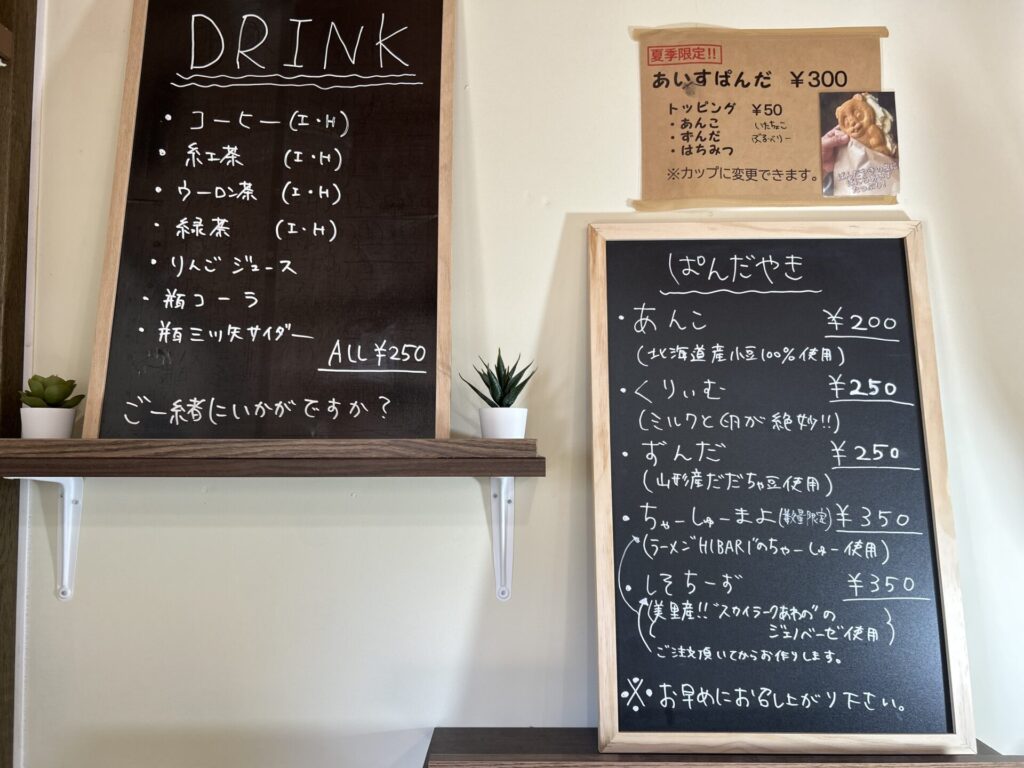 DRINK
・コーヒー(I・H)
・紅茶 (I・H)
・ウーロン茶 (I・H)
・緑茶 (I・H)
・りんごジュース
・瓶コーラ
・瓶三ツ矢サイダー
ALL ¥250
ご一緒にいかがですか?
夏季限定!!
あいすぱんだ ¥300
トッピング ¥50
・あんこ いたちょこ
・ずんだ ぶるーべりー
・はちみつ
※カップに変更できます。
ぱんだやき
・あんこ ¥200
(北海道産小豆100%使用)
・くりぃむ ¥250
(ミルクと卵が絶妙!!)
・ずんだ ¥250
(山形産だだちゃ豆使用)
・ちゃーしゅーまよ(数量限定) ¥350
(ラーメン"HIBARI"のちゃーしゅー使用)
・しそちーず ¥350
(美里産!!"スカイラークあわの"の
ジェノベーゼ使用)
ご注文頂いてからお作りします。
※・お早めにお召し上がり下さい。